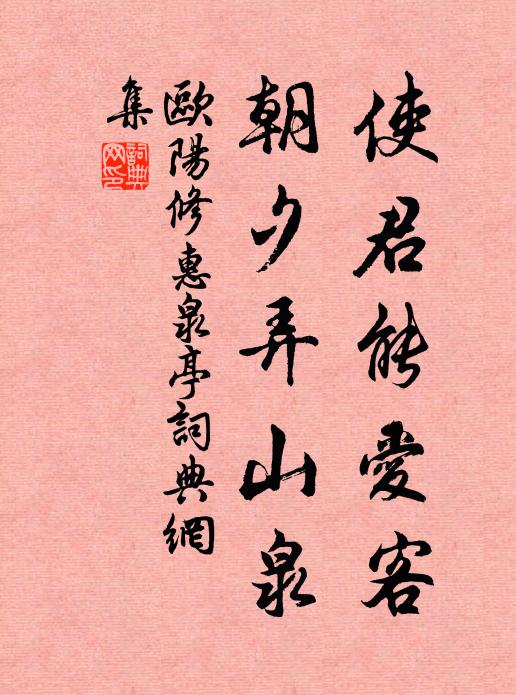 使君能愛客
朝夕弄山泉
歐陽修惠泉亭詞典網
集
詞典網印